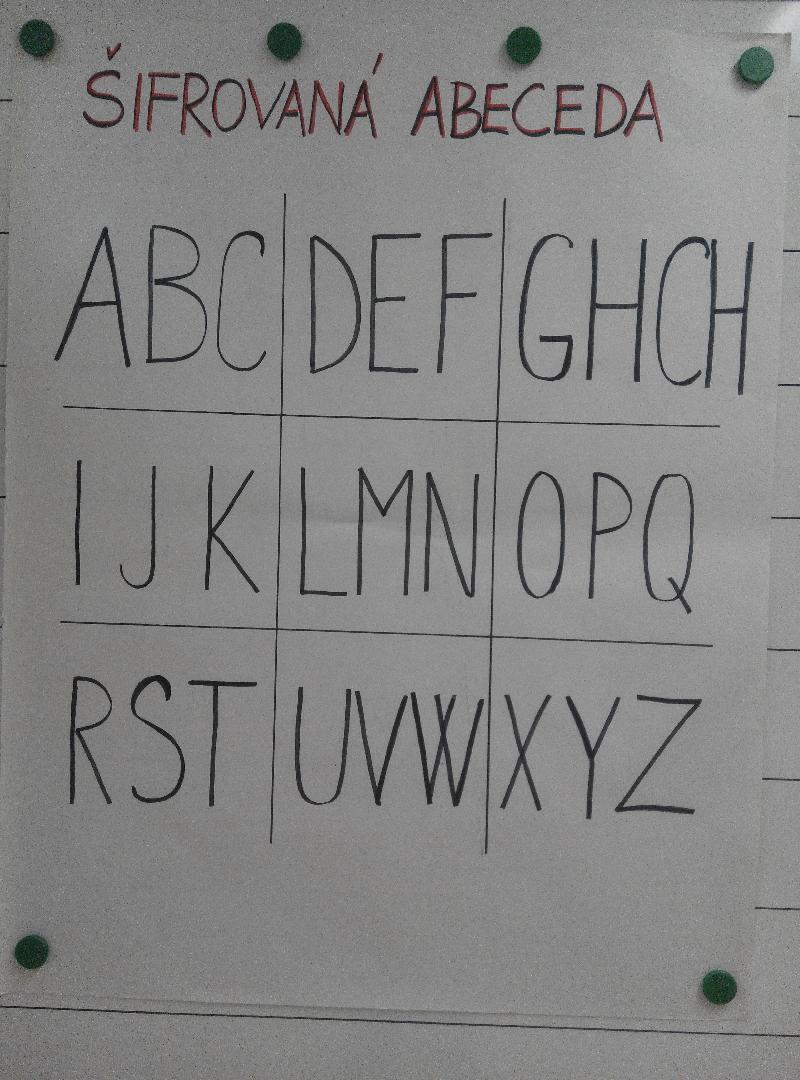 ŠIFROVANÁ ABECEDA
ABC DEF GHCH
IJK LMN OPQ
RST UVW XYZ